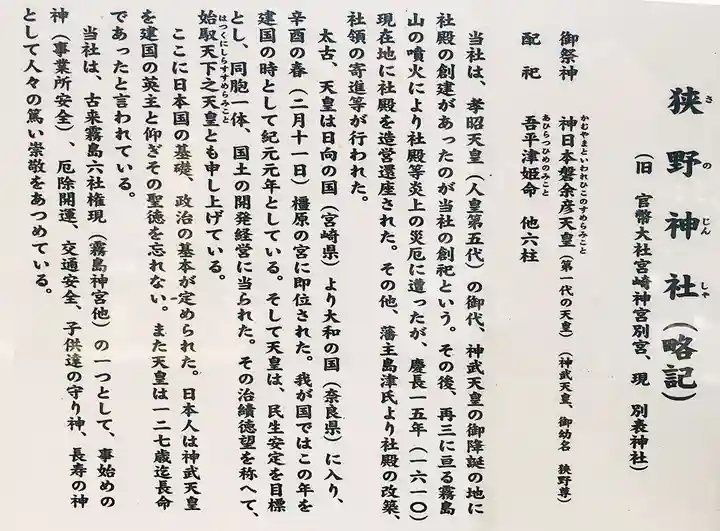 狭野神社(略記)
さのじんしゃ
(旧 官幣大社宮崎神宮別宮、現 別表神社)
御祭神 神日本磐余彦天皇(第一代の天皇)(神武天皇、御幼名 狭野尊)
かむやまといわれひこのすめらみこと
配祀 吾平津姫命 他六柱
あひらつひめのみこと
当社は、孝昭天皇(人皇第五代)の御代、神武天皇の御降誕の地に
社殿の創建があったのが当社の創祀という。その後、再三に亘る霧島
山の噴火により社殿等炎上の災厄に遭ったが、慶長一五年(一六一〇)
現在地に社殿を造営還座された。その他、藩主島津氏より社殿の改築、
社領の寄進等が行われた。
太古、天皇は日向の国(宮崎県)より大和の国(奈良県)に入り、
辛酉の春(二月十一日)橿原の宮に即位された。我が国ではこの年を
建国の時として紀元元年としている。そして天皇は、民生安定を目標
とし、同胞一体、国土の開発経営に当られた。その治績徳望を称へて、
始馭天下之天皇とも申し上げている。
はつくにしらすすめらみこと
ここに日本国の基礎、政治の基本が定められた。日本人は神武天皇
を建国の英主と仰ぎその聖徳を忘れない。また天皇は一二七歳迄長命
であったと言われている。
当社は、古来霧島六社権現(霧島神宮他)の一つとして、事始めの
神(事業所安全)、厄除開運、交通安全、子供達の守り神、長寿の神
として人々の篤い崇敬をあつめている。